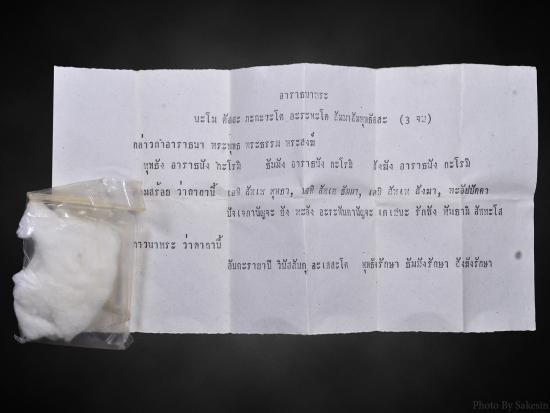 อาราธนาพระ
นะโม ตัสสะ ภะคะวะโต อะระหะโต สัมมาสัมพุทธัสสะ (3 จบ)
กล่าวคำอาราธนา พระพุทธ พระธรรม พระสงฆ์
พุทธัง อาราธนัง กะโรมิ ธัมมัง อาราธนัง กะโรมิ สังฆัง อาราธนัง กะโรมิ
ว่าคาถานี้ พุทธา, ธัมมา, สังฆา,
ปัจเจกานัญจะ ยัง พะลัง อะระหันตานัญจะ เตเชนะ รักขัง พันธามิ สัพพะโส
ภาวนาพระ ว่าคาถานี้
อันตะรายาปิ วินัสสันตุ อะเสสะโต พุทธังรักษา ธัมมังรักษา สังฆังรักษา
Photo By Sakesin